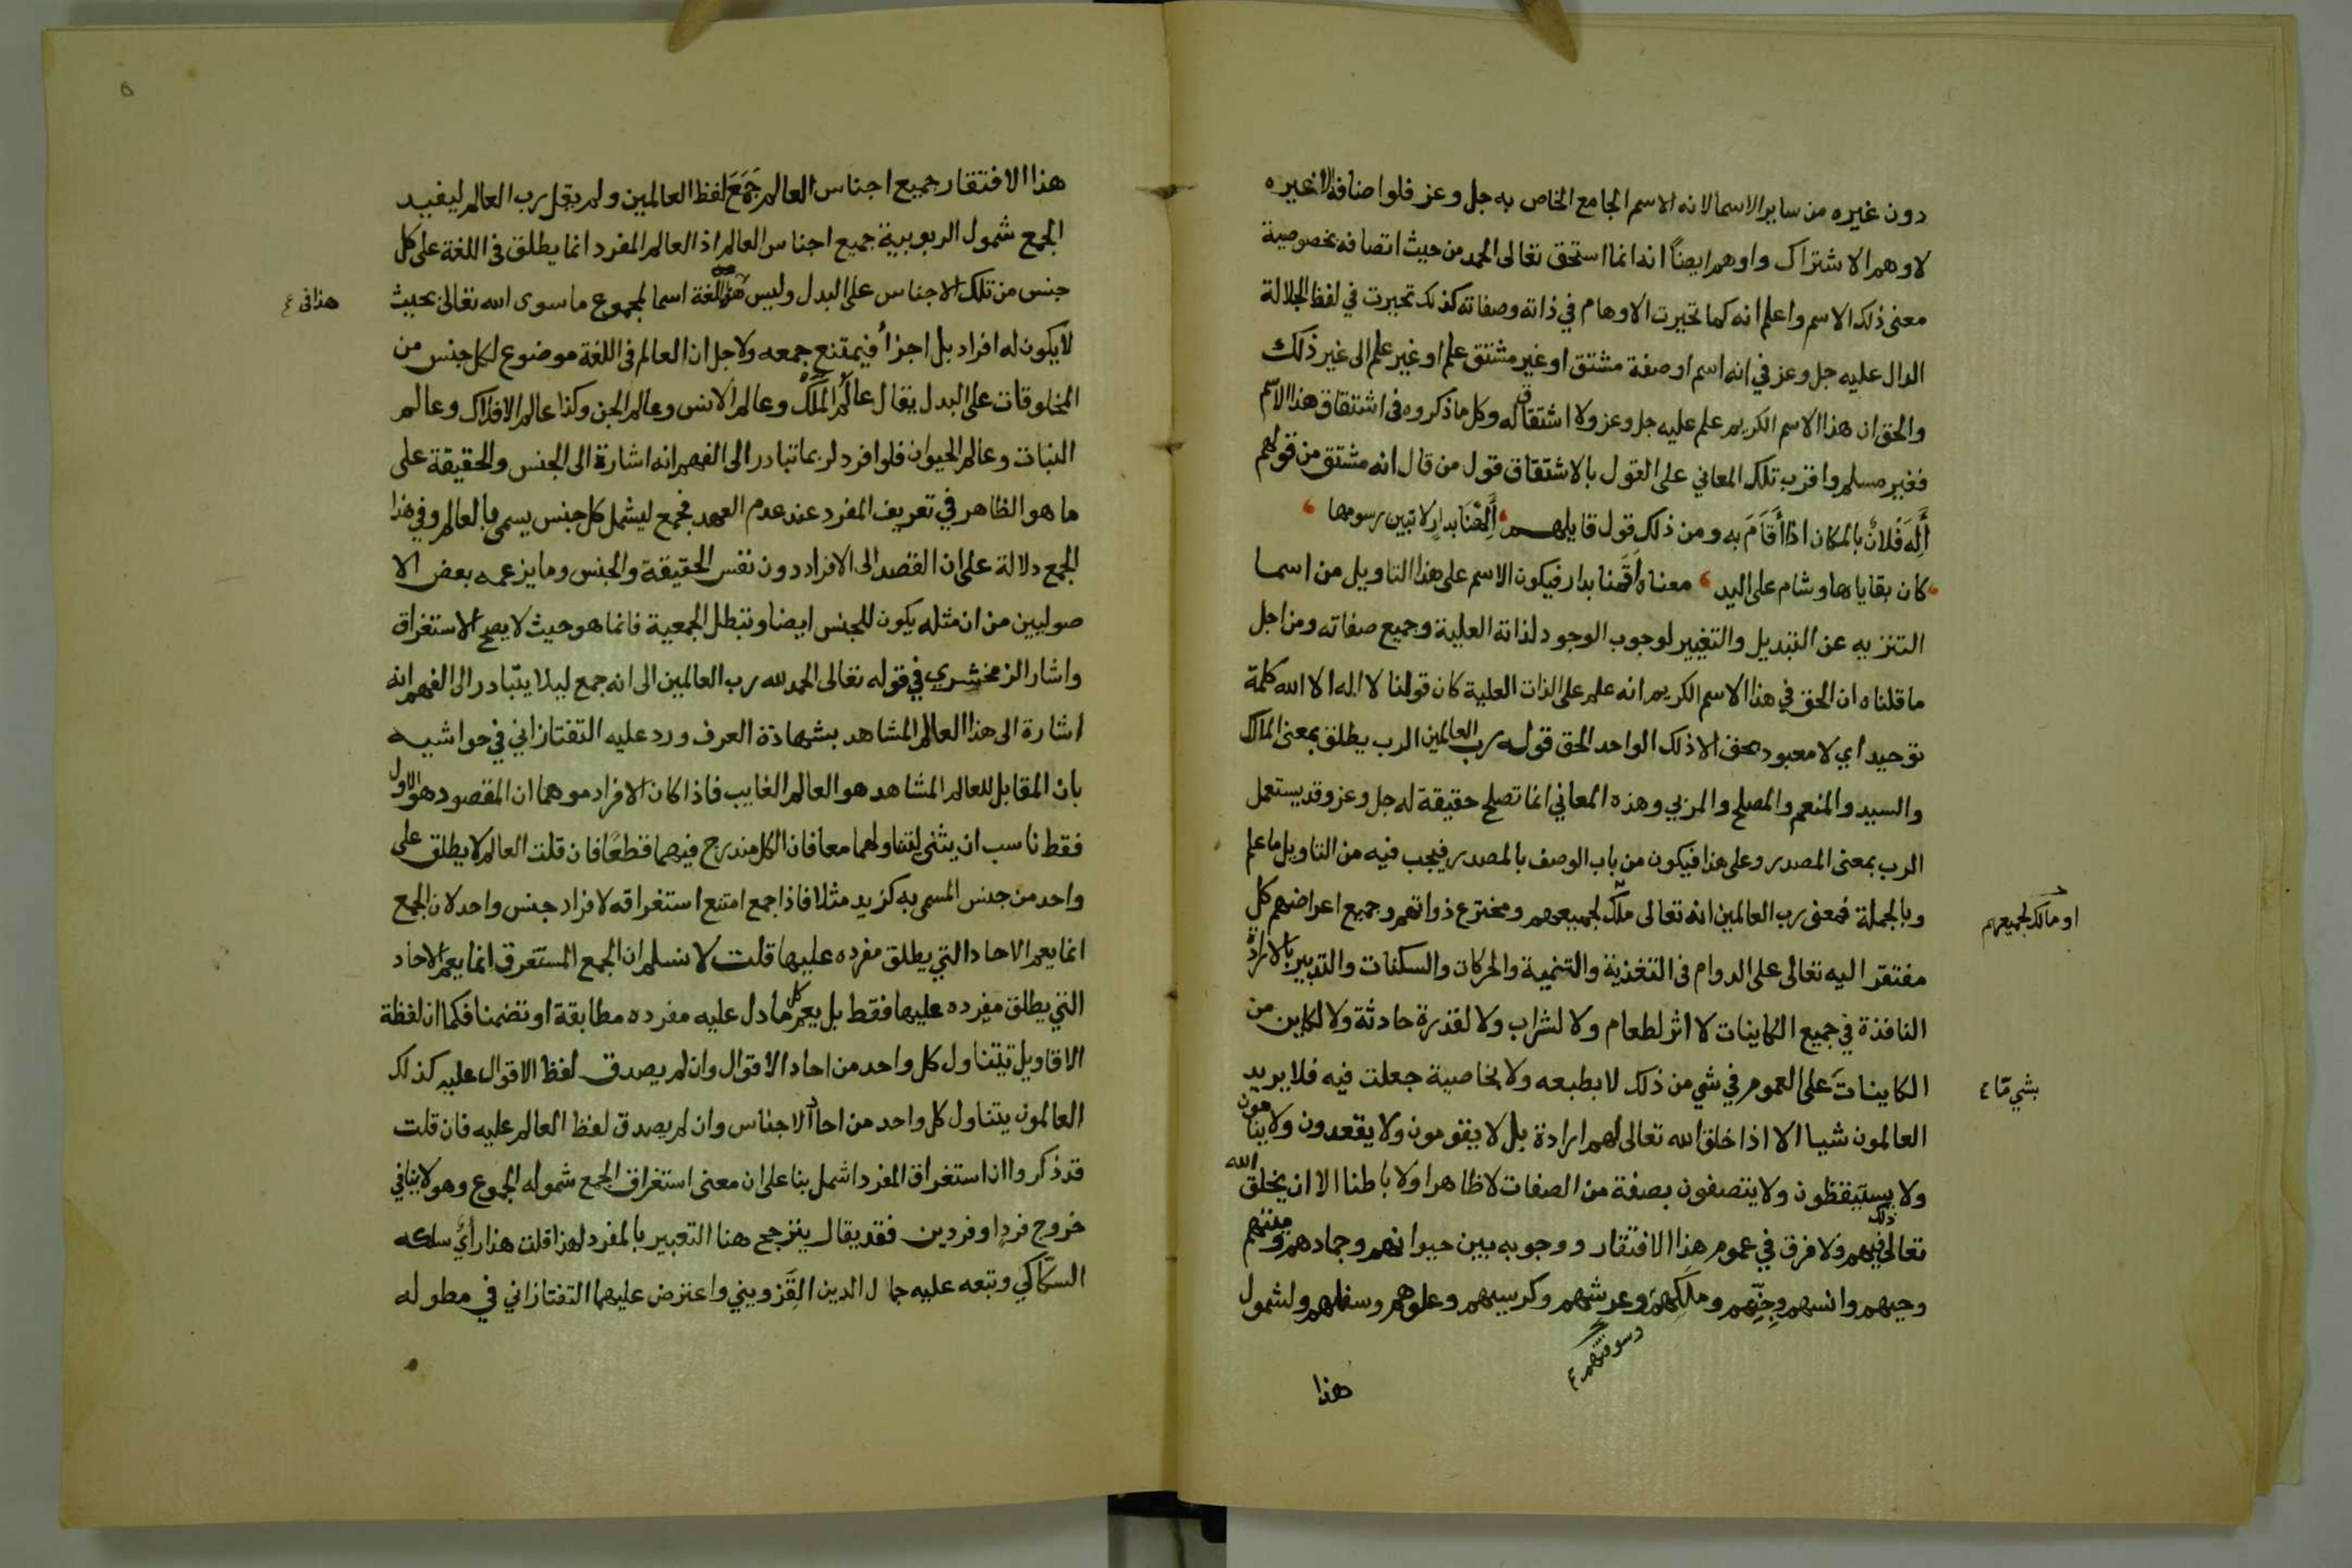 دون غيره من ساير الاسما لانه الاسم الجامع الخاص به جل وعز فلو اضافه لاغيره
لاوهم الاشتراك واوهم ايضاً انه انما استحق تعالى الحمد من حيث اتصافه بخصوصية
معنى ذلك الاسم واعلم انه كما تحيرت الاوهام في ذاته وصفاته كذلك تحيرت في لفظ الجلالة
الدال عليه جل وعز في انه اسم او صفة مشتق او غير مشتق علم او غير علم الى غير ذلك
والحق ان هذا الاسم الكريم علم عليه جل وعز ولا اشتقاق له وكل ما ذكروه في اشتقاق هذا الاسم
فغير مسلم واقرب تلك المعاني على القول بالاشتقاق قول من قال انه مشتق من قولهم
أَلِهَ فلانٌ بالمكان اذا أَقَامَ به ومن ذلك قول قايلهم أَلِهْنَا بدارٍ لا تبين رسومها
كان بقاياها وشام على اليد معناه أَقَمْنا بدار فيكون الاسم على هذا التاويل من اسما
التنزيه عن التبديل والتغيير لوجوب الوجود لذاته العلية وجميع صفاته ومن اجل
ما قلناه ان الحق في هذا الاسم الكريم انه علم على الذات العلية كان قولنا لا اله الا الله كلمة
توحيد اي لا معبود بحق الا ذلك الواحد الحق قوله رب العالمين الرب يطلق بمعنى المالك
والسيد والمنعم والمصلح والمربي وهذه المعاني انما تصلح حقيقة له جل وعز وقد يستعمل
الرب بمعنى المصدر وعلى هذا فيكون من باب الوصف بالمصدر فيجب فيه من التاويل ما علم
وبالجملة فمعنى رب العالمين انه تعالى ملك لجميعهم ومخترع ذواتهم وجميع اعراضهم كل
او مالك لجميعهم
مفتقر اليه تعالى على الدوام في التغذية والتنمية والحركات والسكنات والتدبير بالارادة
النافذة في جميع الكاينات لا اثر لطعام ولا لشراب ولا لقدرة حادثة ولا لكاين من
الكاينات على العموم في شي من ذلك لا بطبعه ولا بخاصية جعلت فيه فلا يريد
بشي مّا ٤
العالمون شيا الا اذا خلق الله تعالى لهم ارادة بل لا يقومون ولا يقعدون ولا ينامون
ولا يستيقظون ولا يتصفون بصفة من الصفات لا ظاهرا ولا باطنا الا ان يخلق الله
تعالى ذلك فيهم ولا فرق في عموم هذا الافتقار ووجوبه بين حيوانهم وجمادهم وميتهم
وحيهم وانسهم وجِنِّهم وملكهم وعرشهم وكرسيهم وعلوهم وسفلهم ولشمول
وسوقتهم ٤
هذا
هذا الافتقار جميع اجناس العالم جَمَعَ لفظ العالمين ولم يقل رب العالم ليفيد
الجمع شمول الربوبية جميع اجناس العالم اذ العالم المفرد انما يطلق في اللغة على كل
جنس من تلك الاجناس على البدل وليس هو في اللغة اسما لمجموع ما سوى الله تعالى بحيث
لا يكون له افراد بل اجزأ فيمتنع جمعه ولاجل ان العالم في اللغة موضوع لكل جنس من
المخلوقات على البدل يقال عالَمُ المَلَكِ وعالم الانس وعالم الجن وكذا عالم الافلاك وعالم
النبات وعالم الحيوان فلو افرد لربما تبادر الى الفهم انه اشارة الى الجنس والحقيقة على
ما هو الظاهر في تعريف المفرد عند عدم العهد فجمع ليشمل كل جنس يسمى بالعالم وفي هذا
الجمع دلالة على ان القصد الى الافراد دون نفس الحقيقة والجنس وما يزعمه بعض الا
صوليين من ان مثله يكون للجنس ايضا وتبطل الجمعية فانما هو حيث لا يصح الاستغراق
واشار الزمخشري في قوله تعالى الحمد لله رب العالمين الى انه جمع ليلا يتبادر الى الفهم انه
اشارة الى هذا العالم المشاهد بشهادة العرف ورد عليه التفتازاني في حواشيه
بان المقابل للعالم المشاهد هو العالم الغايب فاذا كان الافراد موهما ان المقصود هو الاول
فقط ناسب ان يثنى لتناولهما معا فان الكل مندرج فيهما قطعًا فان قلت العالم لا يطلق على
واحد من جنس المسمى به كزيد مثلا فاذا جمع امتنع استغراقه لافراد جنس واحد لان الجمع
انما يعم الاحاد التي يطلق مفرده عليها قلت لا نسلم ان الجمع المستغرق انما يعم الاحاد
التي يطلق مفرده عليها فقط بل يعم كل ما دل عليه مفرده مطابقة او تضمنا فكما ان لفظة
الاقاويل تتناول كل واحد من احاد الاقوال وان لم يصدق لفظ الاقوال عليه كذلك
العالمون يتناول كل واحد من احاد الاجناس وان لم يصدق لفظ العالم عليه فان قلت
قد ذكروا ان استغراق المفرد اشمل بنا على ان معنى استغراق الجمع شموله الجموع وهو لا ينافي
خروج فردٍ او فردين فقد يقال يترجح هنا التعبير بالمفرد لهذا قلت هذا رأيٌ سلكه
السكّاكي وتبعه عليه جمال الدين القَزويني واعترض عليهما التفتازاني في مطوله